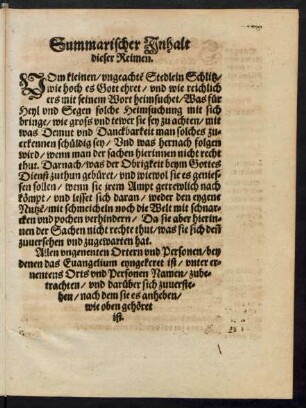 Summarischer Inhalt
dieser Reimen.
VOm kleinen/ ungeachte Stedlein Schlitz/
wie hoch es Gott ehret/ und wie reichlich
ers mit seinem Wort heimsuchet/ Was für
Heyl und Segen solche Heimsuchung mit sich
bringe/ wie groß und tewer sie sey zu achten/ mit
was Demut und Danckbarkeit man solches zu-
erkennen schüldig sey/ Und was hernach folgen
wird/ wenn man der sachen hierinnen nicht recht
thut. Darnach/ was der Obrigkeit beym Gottes
Dienst zuthun gebüret/ und wiewol sie es genies-
sen sollen/ wenn sie jrem Ampt getrewlich nach
kömpt/ und lesset sich daran/ weder den eygene
Nutz/ mit schmeicheln noch die Welt mit schnar-
cken und pochen verhindern/ Da sie aber hierin-
nen der Sachen nicht rechte thut/ was sie sich deñ
zuuersehen und zugewarten hat.
Allen ungenenten Ortern und Personen/ bey
denen das Euangelium eyngekeret ist/ unter er-
nentens Orts und Personen Namen/ zube-
trachten/ und darüber sich zuuerste-
hen/ nach dem sie es anheben/
wie oben gehöret
ist.